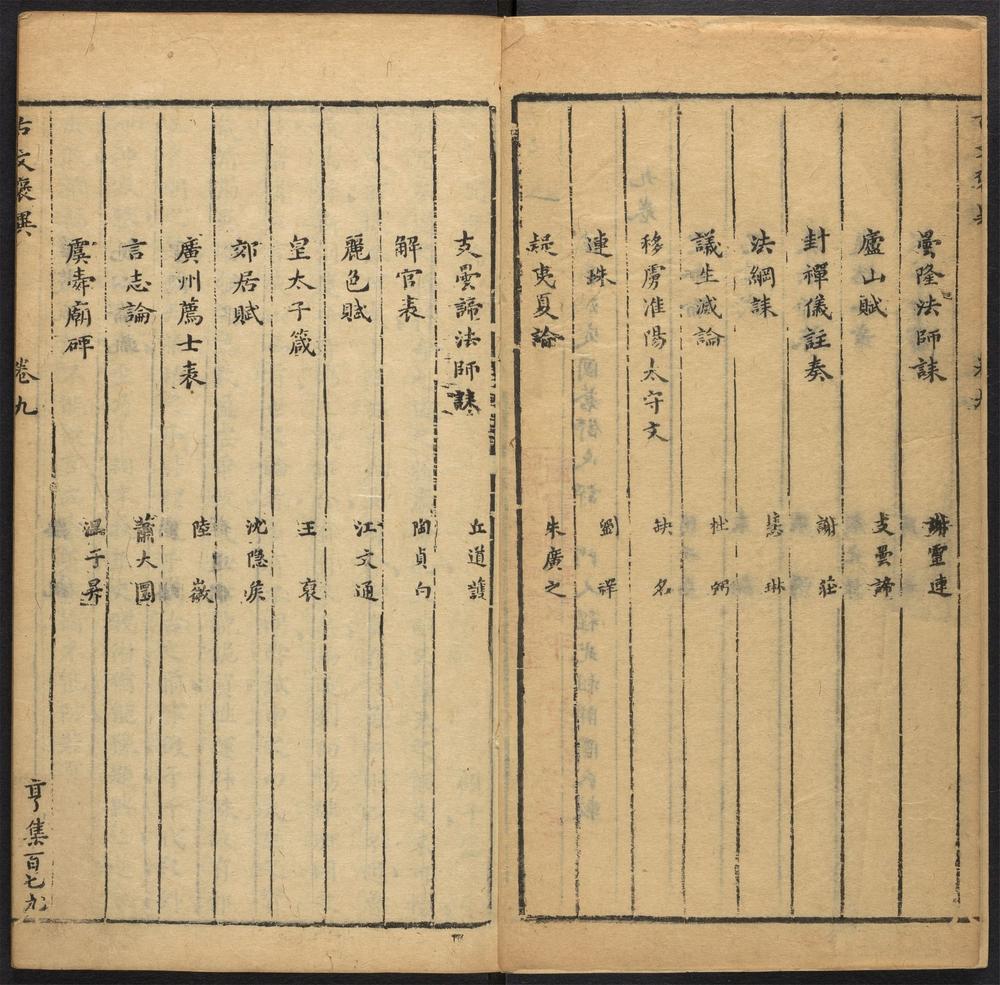 曇隆法師誄 謝靈運
廬山賦 支曇諦
封禪儀註奏 謝莊
法綱誄 慧琳
議生滅論 杜弼
移虜淮陽太守文 缺名
連珠 劉祥
疑夷夏論 朱廣之
支曇諦法師誄 丘道護
解官表 陶貞白
麗色賦 江文通
皇太子箴 王褒
郊居賦 沈隱侯
廣州薦士表 陸徽
言志論 蕭大圜
虞舜廟碑 溫子昇
古文褒異 卷九 亨集百七九